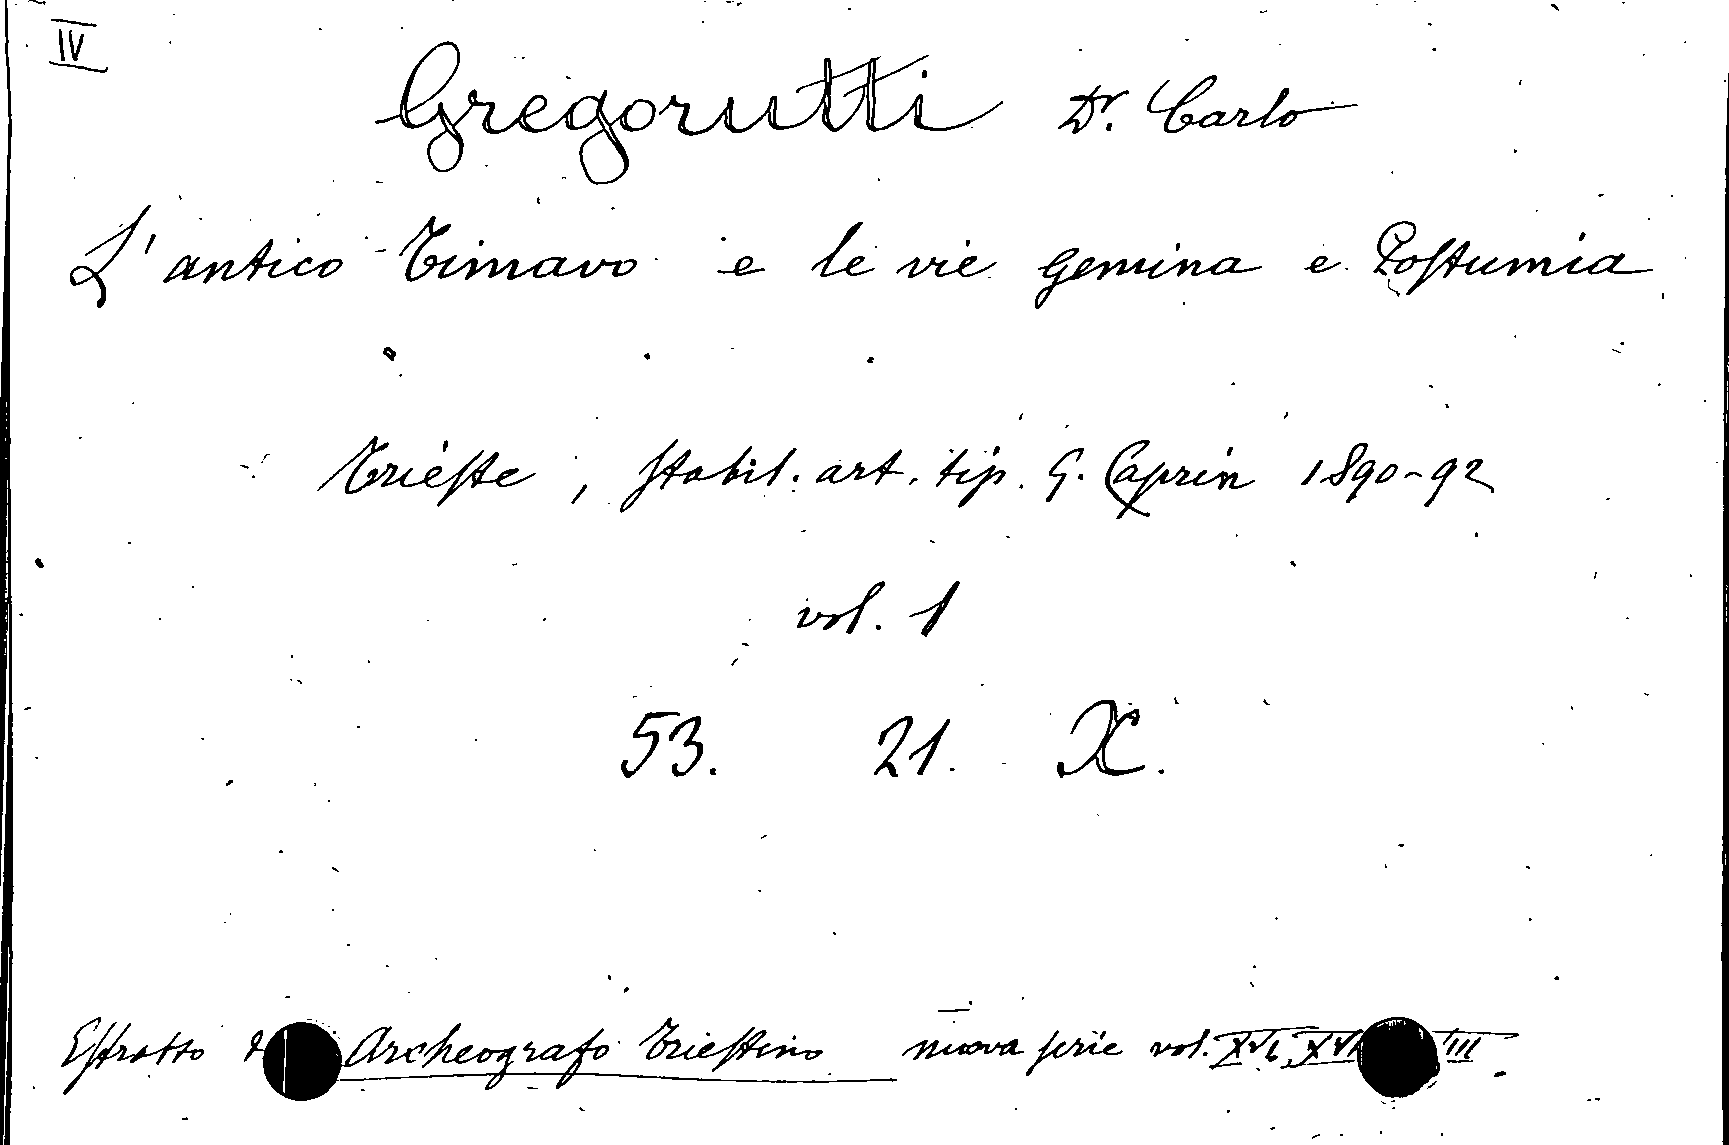 IV
Gregorutti Dr. Carlo
L'antico Timavo e le vie Gemina e Postumia
Trieste, Stabil. art. tip. G. Caprin 1890-92
vol. 1
53. 21. X.
Estratto Archeografo Triestino nuova serie vol. XVI,